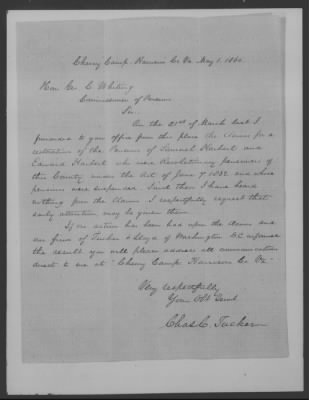 Cherry Camp Harrison Co Va May 1, 1860.
Hon Geo. C. Whiting
Commissioner of Pensions
Sir.
On the 21st of March last I
forwarded to your office from this place the claims for a
restoration of the Pensions of Samuel Harbert and
Edward Harbert who were Revolutionary pensioners of
this County under the Act of June 7 1832 and whose
pensions were suspended. Since then I have heard
nothing from the claims. I respectfully request that
early attention may be given them.
If no action has been had upon the claims and
our firm of Tucker & Lloyd of Washington D.C. informed
the result you will please address all communications
direct to me at "Cherry Camp Harrison Co Va."
Very respectfully,
Your Obt Servt
Chas. C. Tucker